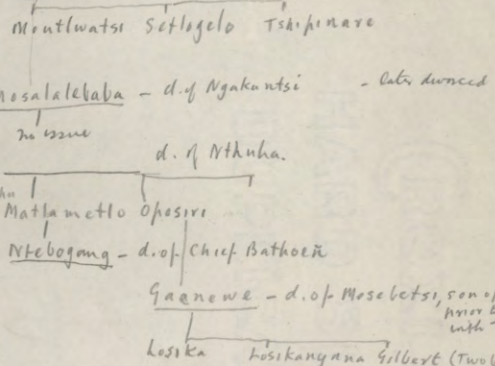 Moutlwatsi Setlogelo Tshipinare
Mosalalebaba - d. of Ngakantsi - later divorced
no issue
d. of Nthuha.
Matlametlo Oposiri
Ntebogang - d. of Chief Bathoeñ
Gaenewe - d. of Mosebetsi, son of
prior to
with
Losika Losikanyana Gilbert (Two